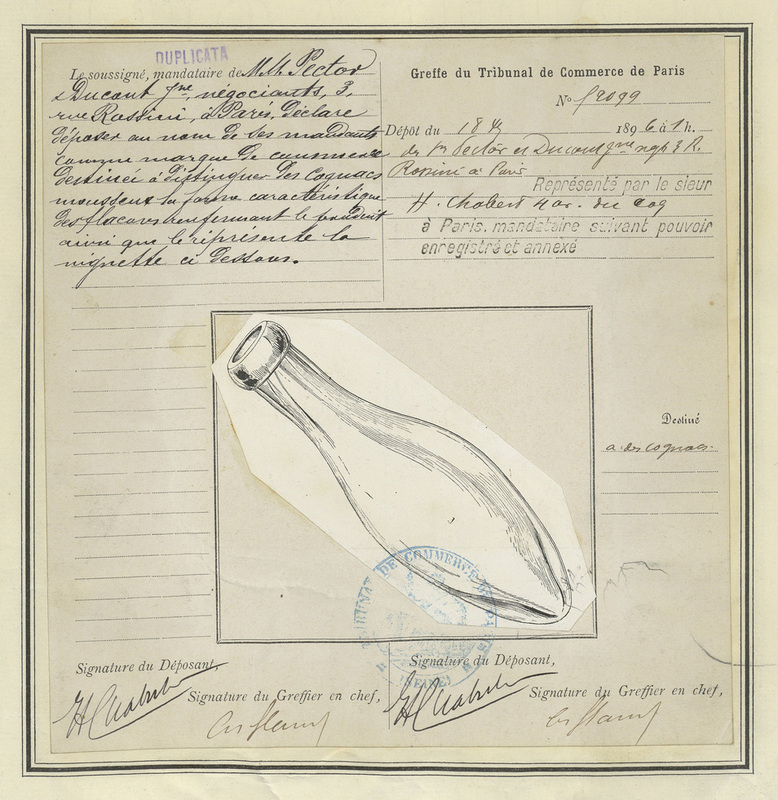 DUPLICATA
Le soussigné, mandataire de M.M. Pector
& Ducout Jne, négociants, 3,
rue Rossini, à Paris, déclare
déposer au nom de ses mandants
comme marque de commerce
destinée à distinguer des cognacs
mousseux la forme caractéristique
des flacons renfermant le produit
ainsi que le représente la
vignette ci dessous.
Greffe du Tribunal de Commerce de Paris
No
Dépôt du 1896 à 1 h.
des Srs Pector et Ducout Jne négts 3 R.
Rossini à Paris
Représenté par le sieur
H. Chabert
à Paris, mandataire suivant pouvoir
enregistré et annexé
Destiné
à des cognacs.
TRIBUNAL DE COMMERCE DE PARIS
(SEINE)
Signature du Déposant,
Signature du Greffier en chef,
Signature du Déposant,
Signature du Greffier en chef,